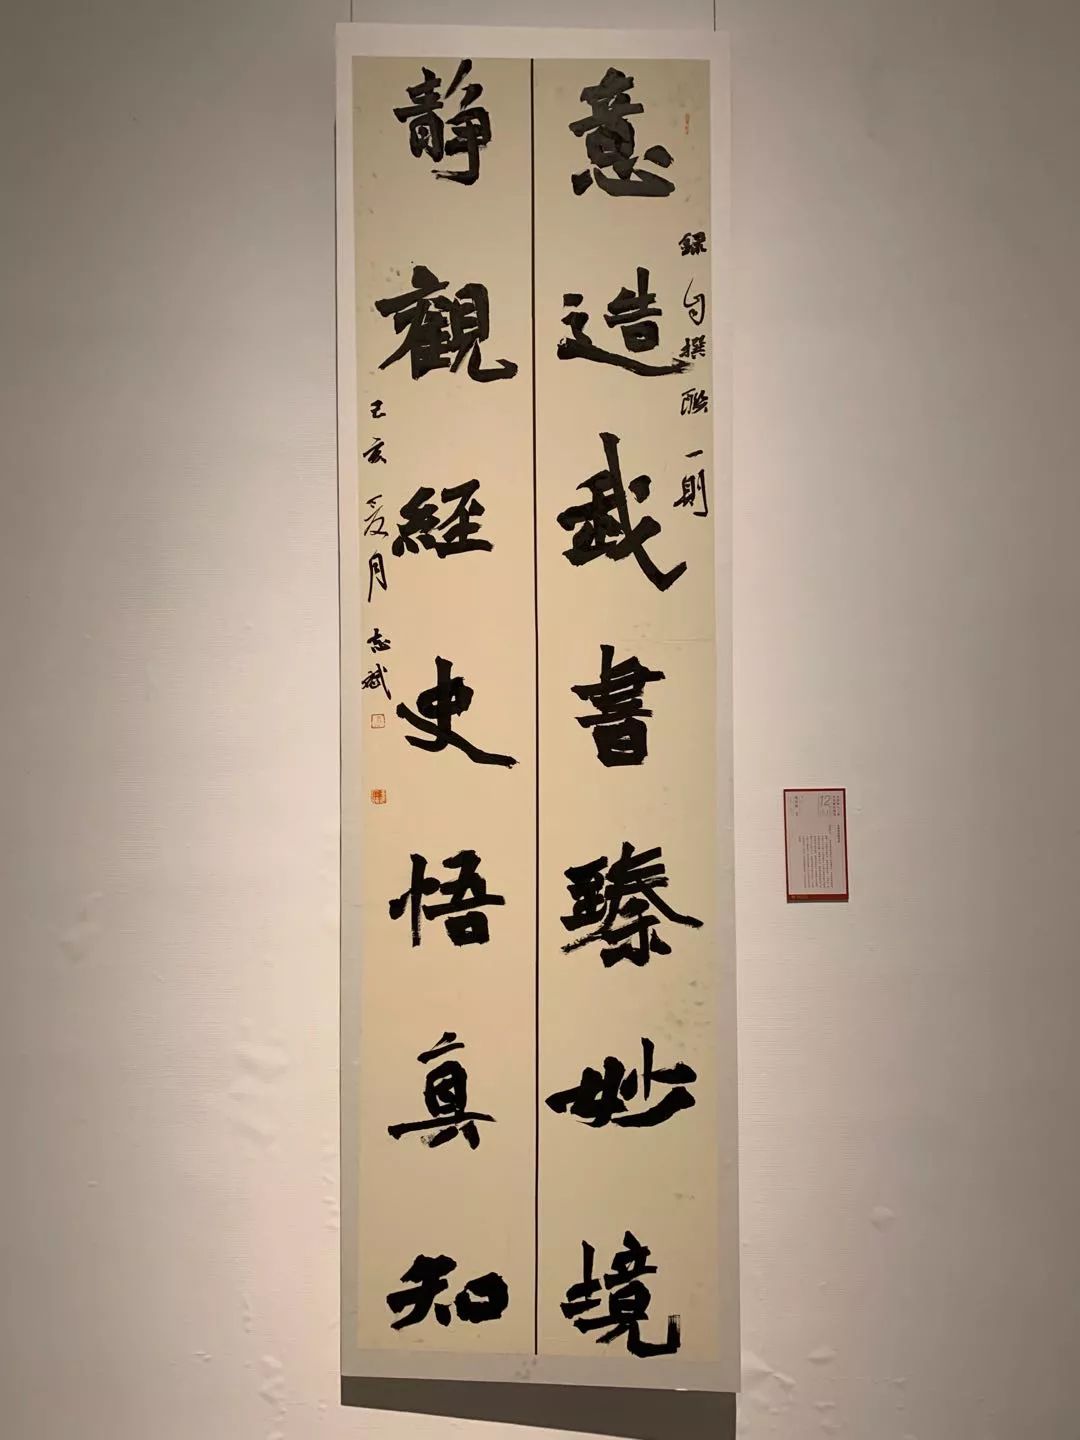 錄自撰聯一則
意造我書臻妙境
靜觀經史悟真知
己亥夏月志斌
12